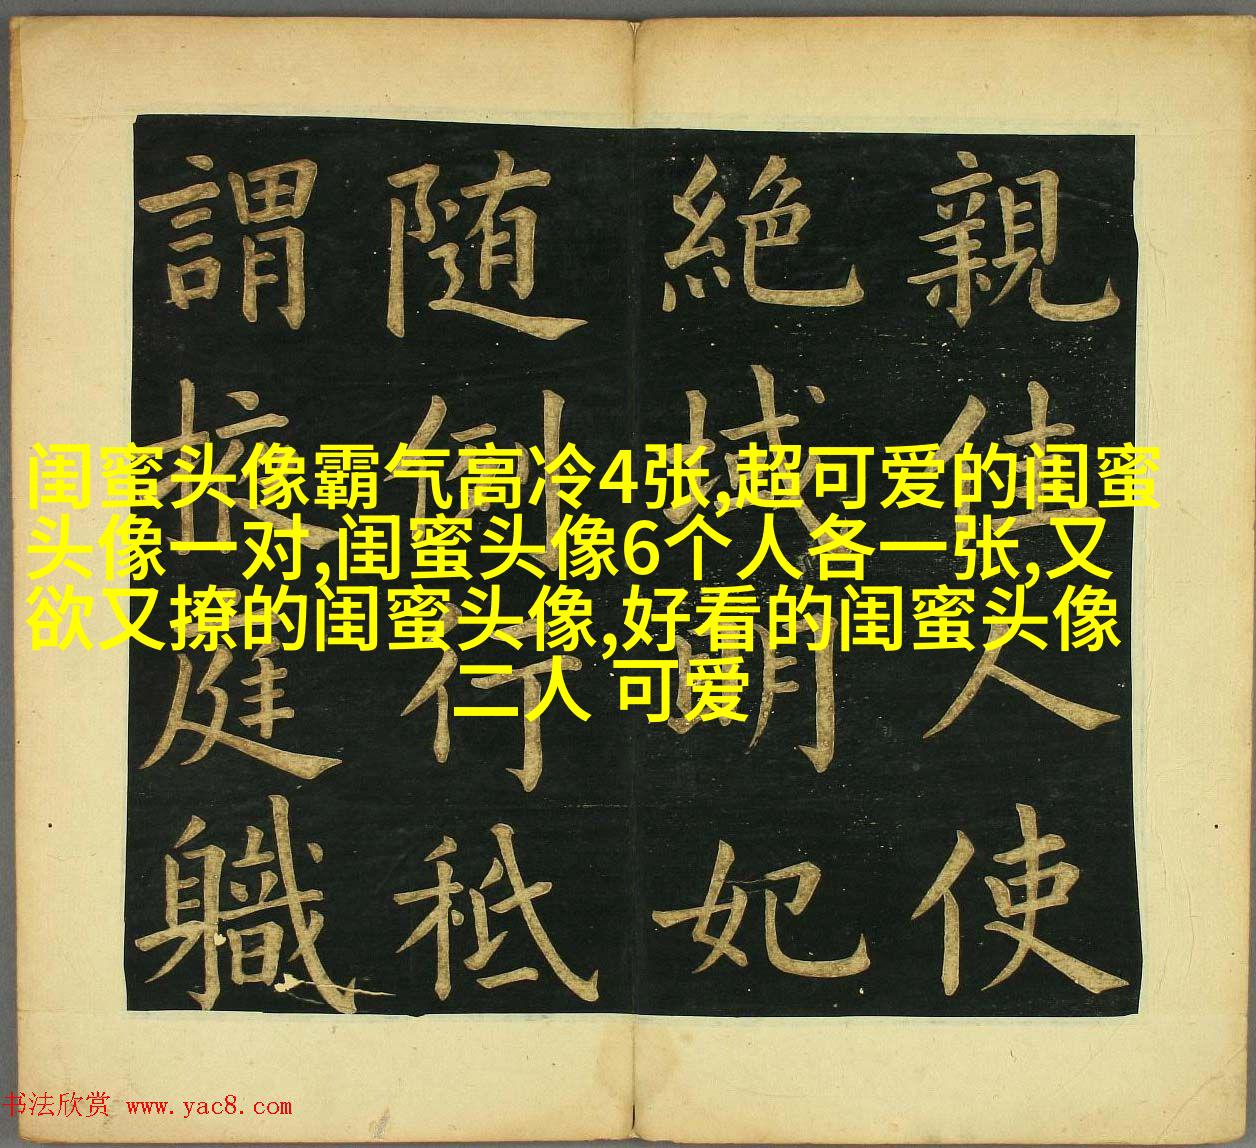 親佳人使
絶域明妃
随例行秪
謂掖庭職
闺蜜头像霸气高冷4张,超可爱的闺蜜
头像一对,闺蜜头像6个人各一张,又
欲又撩的闺蜜头像,好看的闺蜜头像
二人 可爱
书法欣赏 www.yac8.com